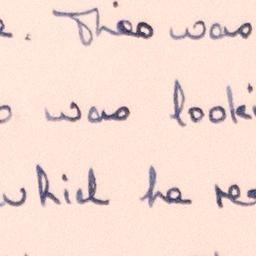 . Theo was
was looki
which he rea